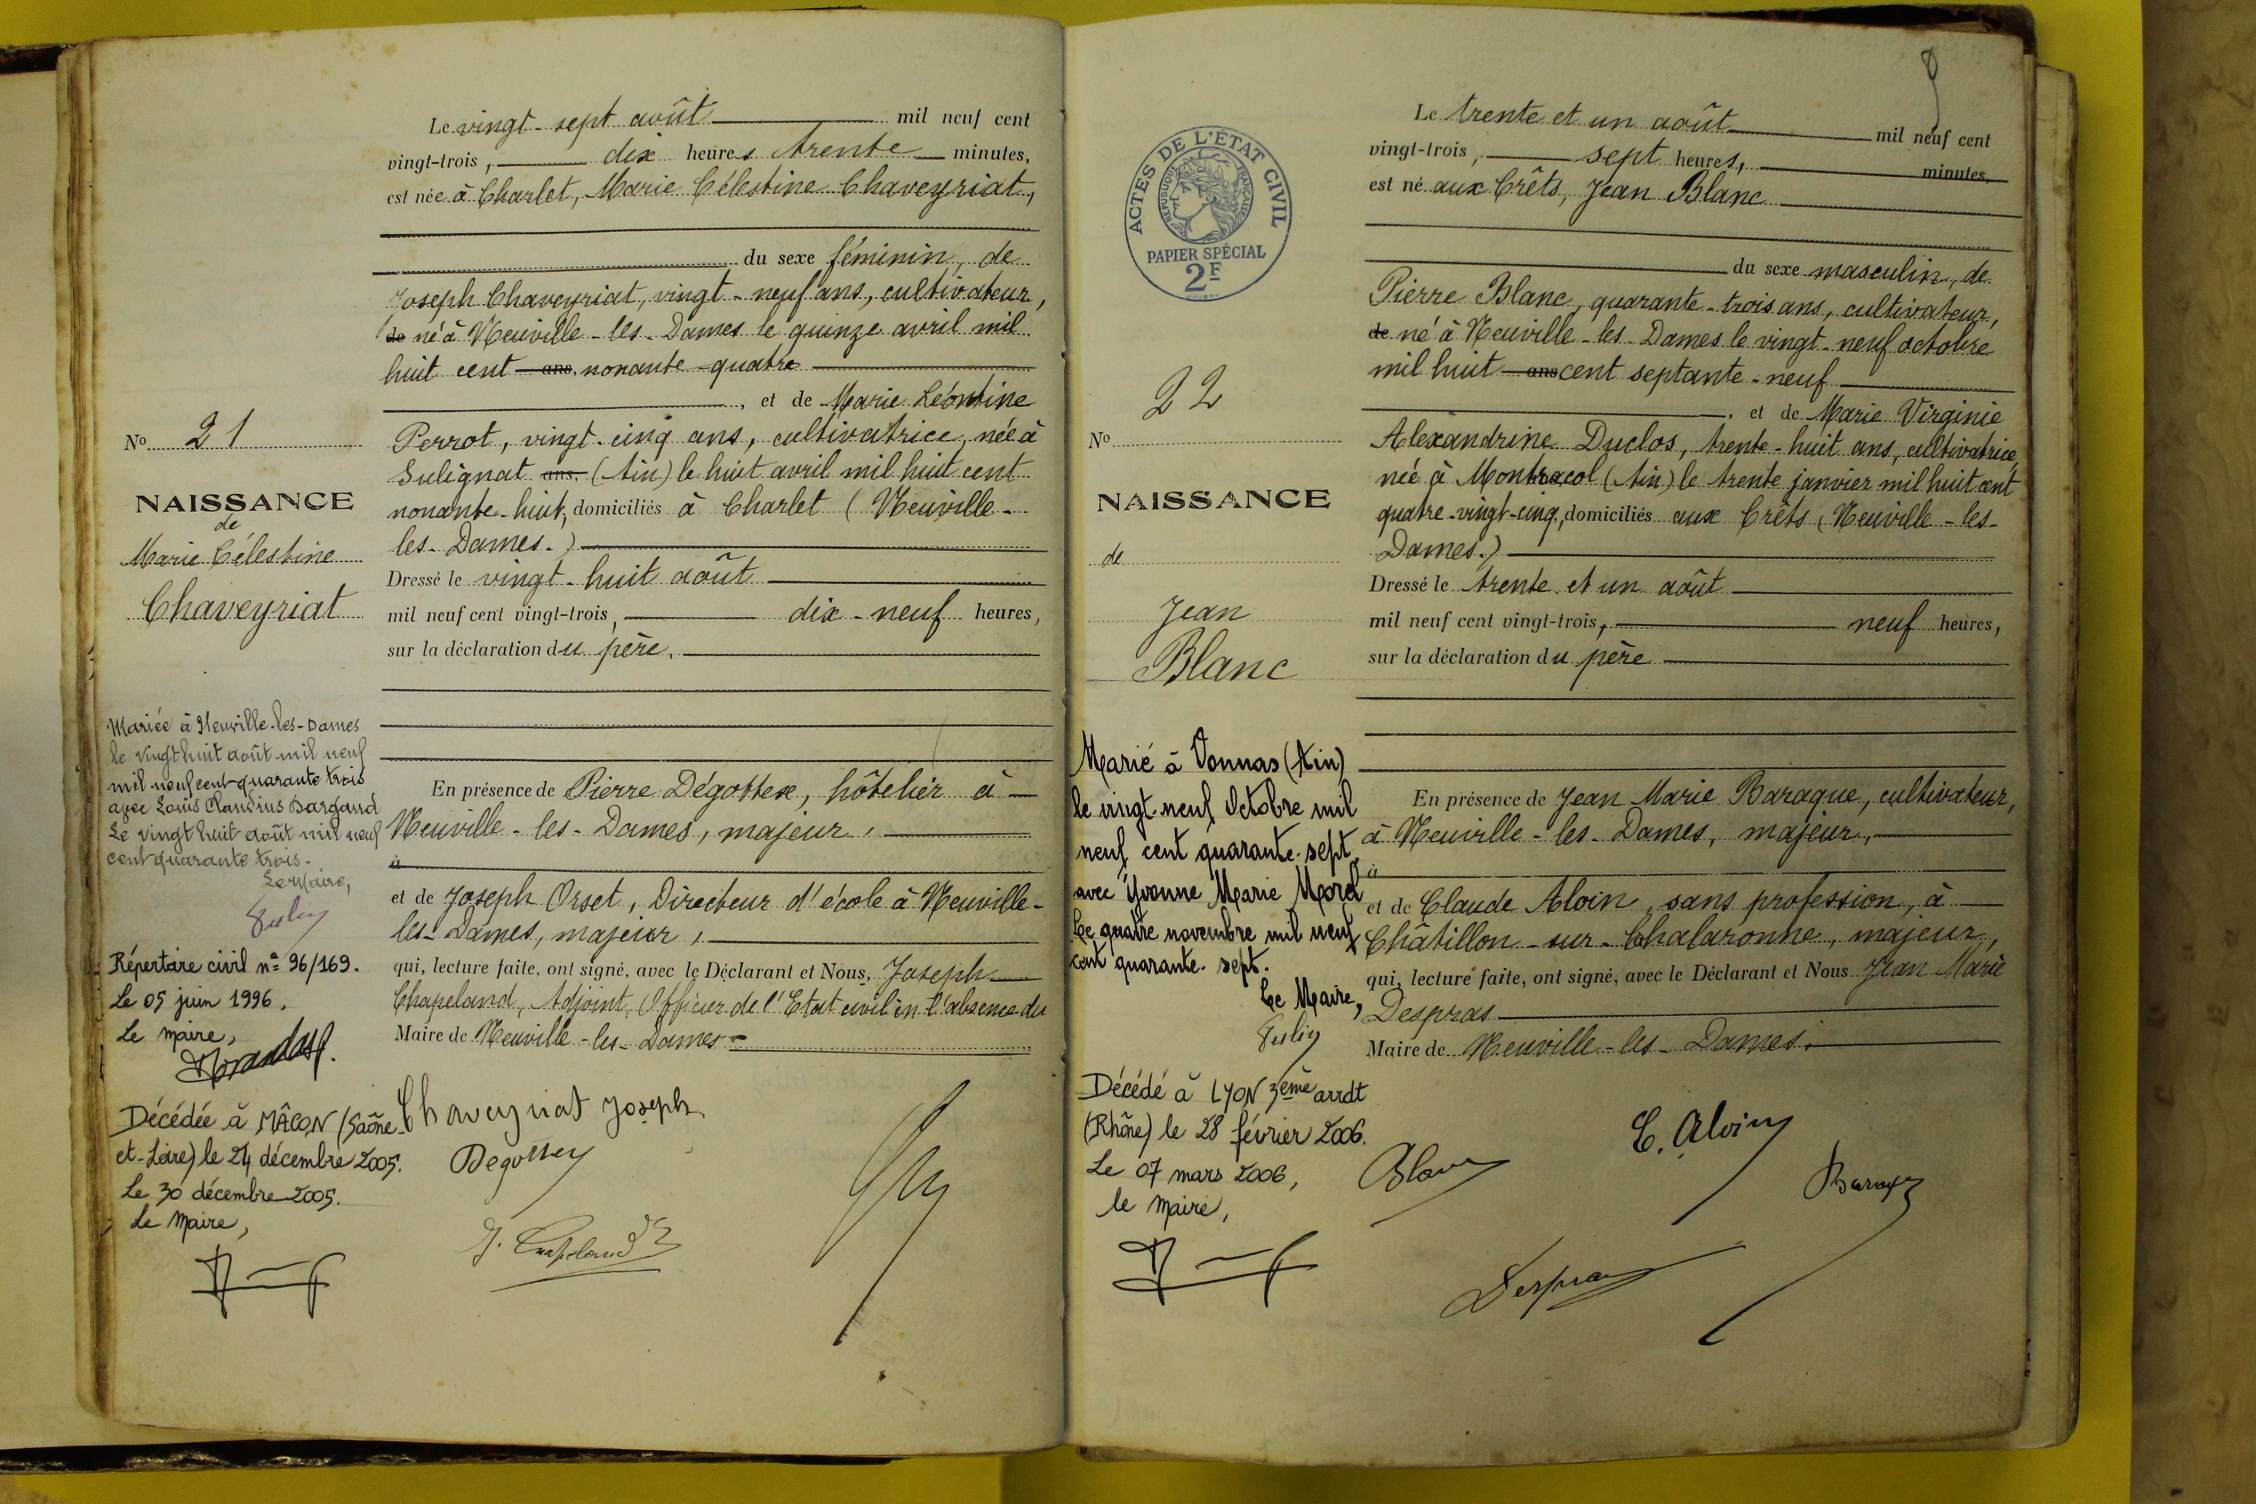 Le vingt-sept août mil neuf cent
vingt-trois, dix heures trente minutes,
est née à Charlet, Marie Célestine Chaveyriat,
du sexe féminin, de
Joseph Chaveyriat, vingt-neuf ans, cultivateur,
de né à Neuville-les-Dames le quinze avril mil
huit cent ans, nonante-quatre
, et de Marie Léontine
Perrot, vingt-cinq ans, cultivatrice, née à
Sulignat ans, (Ain) le huit avril mil huit cent
nonante-huit, domiciliés à Charlet (Neuville-
les-Dames.)
Dressé le vingt-huit août
mil neuf cent vingt-trois, dix-neuf heures,
sur la déclaration du père.
En présence de Pierre Dégottex, hôtelier à
Neuville-les-Dames, majeur,
à
et de Joseph Orset, Directeur d'école à Neuville-
les-Dames, majeur,
qui, lecture faite, ont signé, avec le Déclarant et Nous, Joseph
Chapeland, Adjoint, Officier de l'Etat civil en l'absence du
Maire de Neuville-les-Dames
Chaveyriat Joseph
Degottex
J. Chapeland
No 21
NAISSANCE
de
Marie Célestine
Chaveyriat
Mariée à Neuville-les-Dames
le vingt huit août mil neuf
mil neuf cent quarante trois
avec Louis Claudius Bargaud
Le vingt huit août mil neuf
cent quarante trois.
Le Maire,
Répertoire civil n° 96/169.
Le 05 juin 1996.
Le Maire,
Décédée à MÂCON (Saône-
et-Loire) le 24 décembre 2005.
Le 30 décembre 2005.
Le Maire,
8
ACTES DE L'ÉTAT CIVIL
RÉPUBLIQUE FRANÇAISE
PAPIER SPÉCIAL
2F
Le trente et un août mil neuf cent
vingt-trois, sept heures, minutes,
est né aux Crêts, Jean Blanc
du sexe masculin, de
Pierre Blanc, quarante-trois ans, cultivateur,
de né à Neuville-les-Dames le vingt-neuf octobre
mil huit ans cent septante-neuf
, et de Marie Virginie
Alexandrine Duclos, trente-huit ans, cultivatrice,
née à Montracol (Ain) le trente janvier mil huit cent
quatre-vingt-cinq, domiciliés aux Crêts (Neuville-les-
Dames.)
Dressé le trente et un août
mil neuf cent vingt-trois, neuf heures,
sur la déclaration du père
En présence de Jean Marie Baraque, cultivateur,
à Neuville-les-Dames, majeur,
à
et de Claude Aloin, sans profession, à
Châtillon-sur-Chalaronne, majeur,
qui, lecture faite, ont signé, avec le Déclarant et Nous Jean Marie
Despras
Maire de Neuville-les-Dames.
C. Aloin
Blanc
Baraque
Despras
No 22
NAISSANCE
de
Jean
Blanc
Marié à Vonnas (Ain)
le vingt-neuf Octobre mil
neuf cent quarante-sept
avec Yvonne Marie Morel
Le quatre novembre mil neuf
cent quarante-sept.
Le Maire,
Décédé à LYON 3ème arrdt
(Rhône) le 28 février 2006.
Le 07 mars 2006,
le Maire,